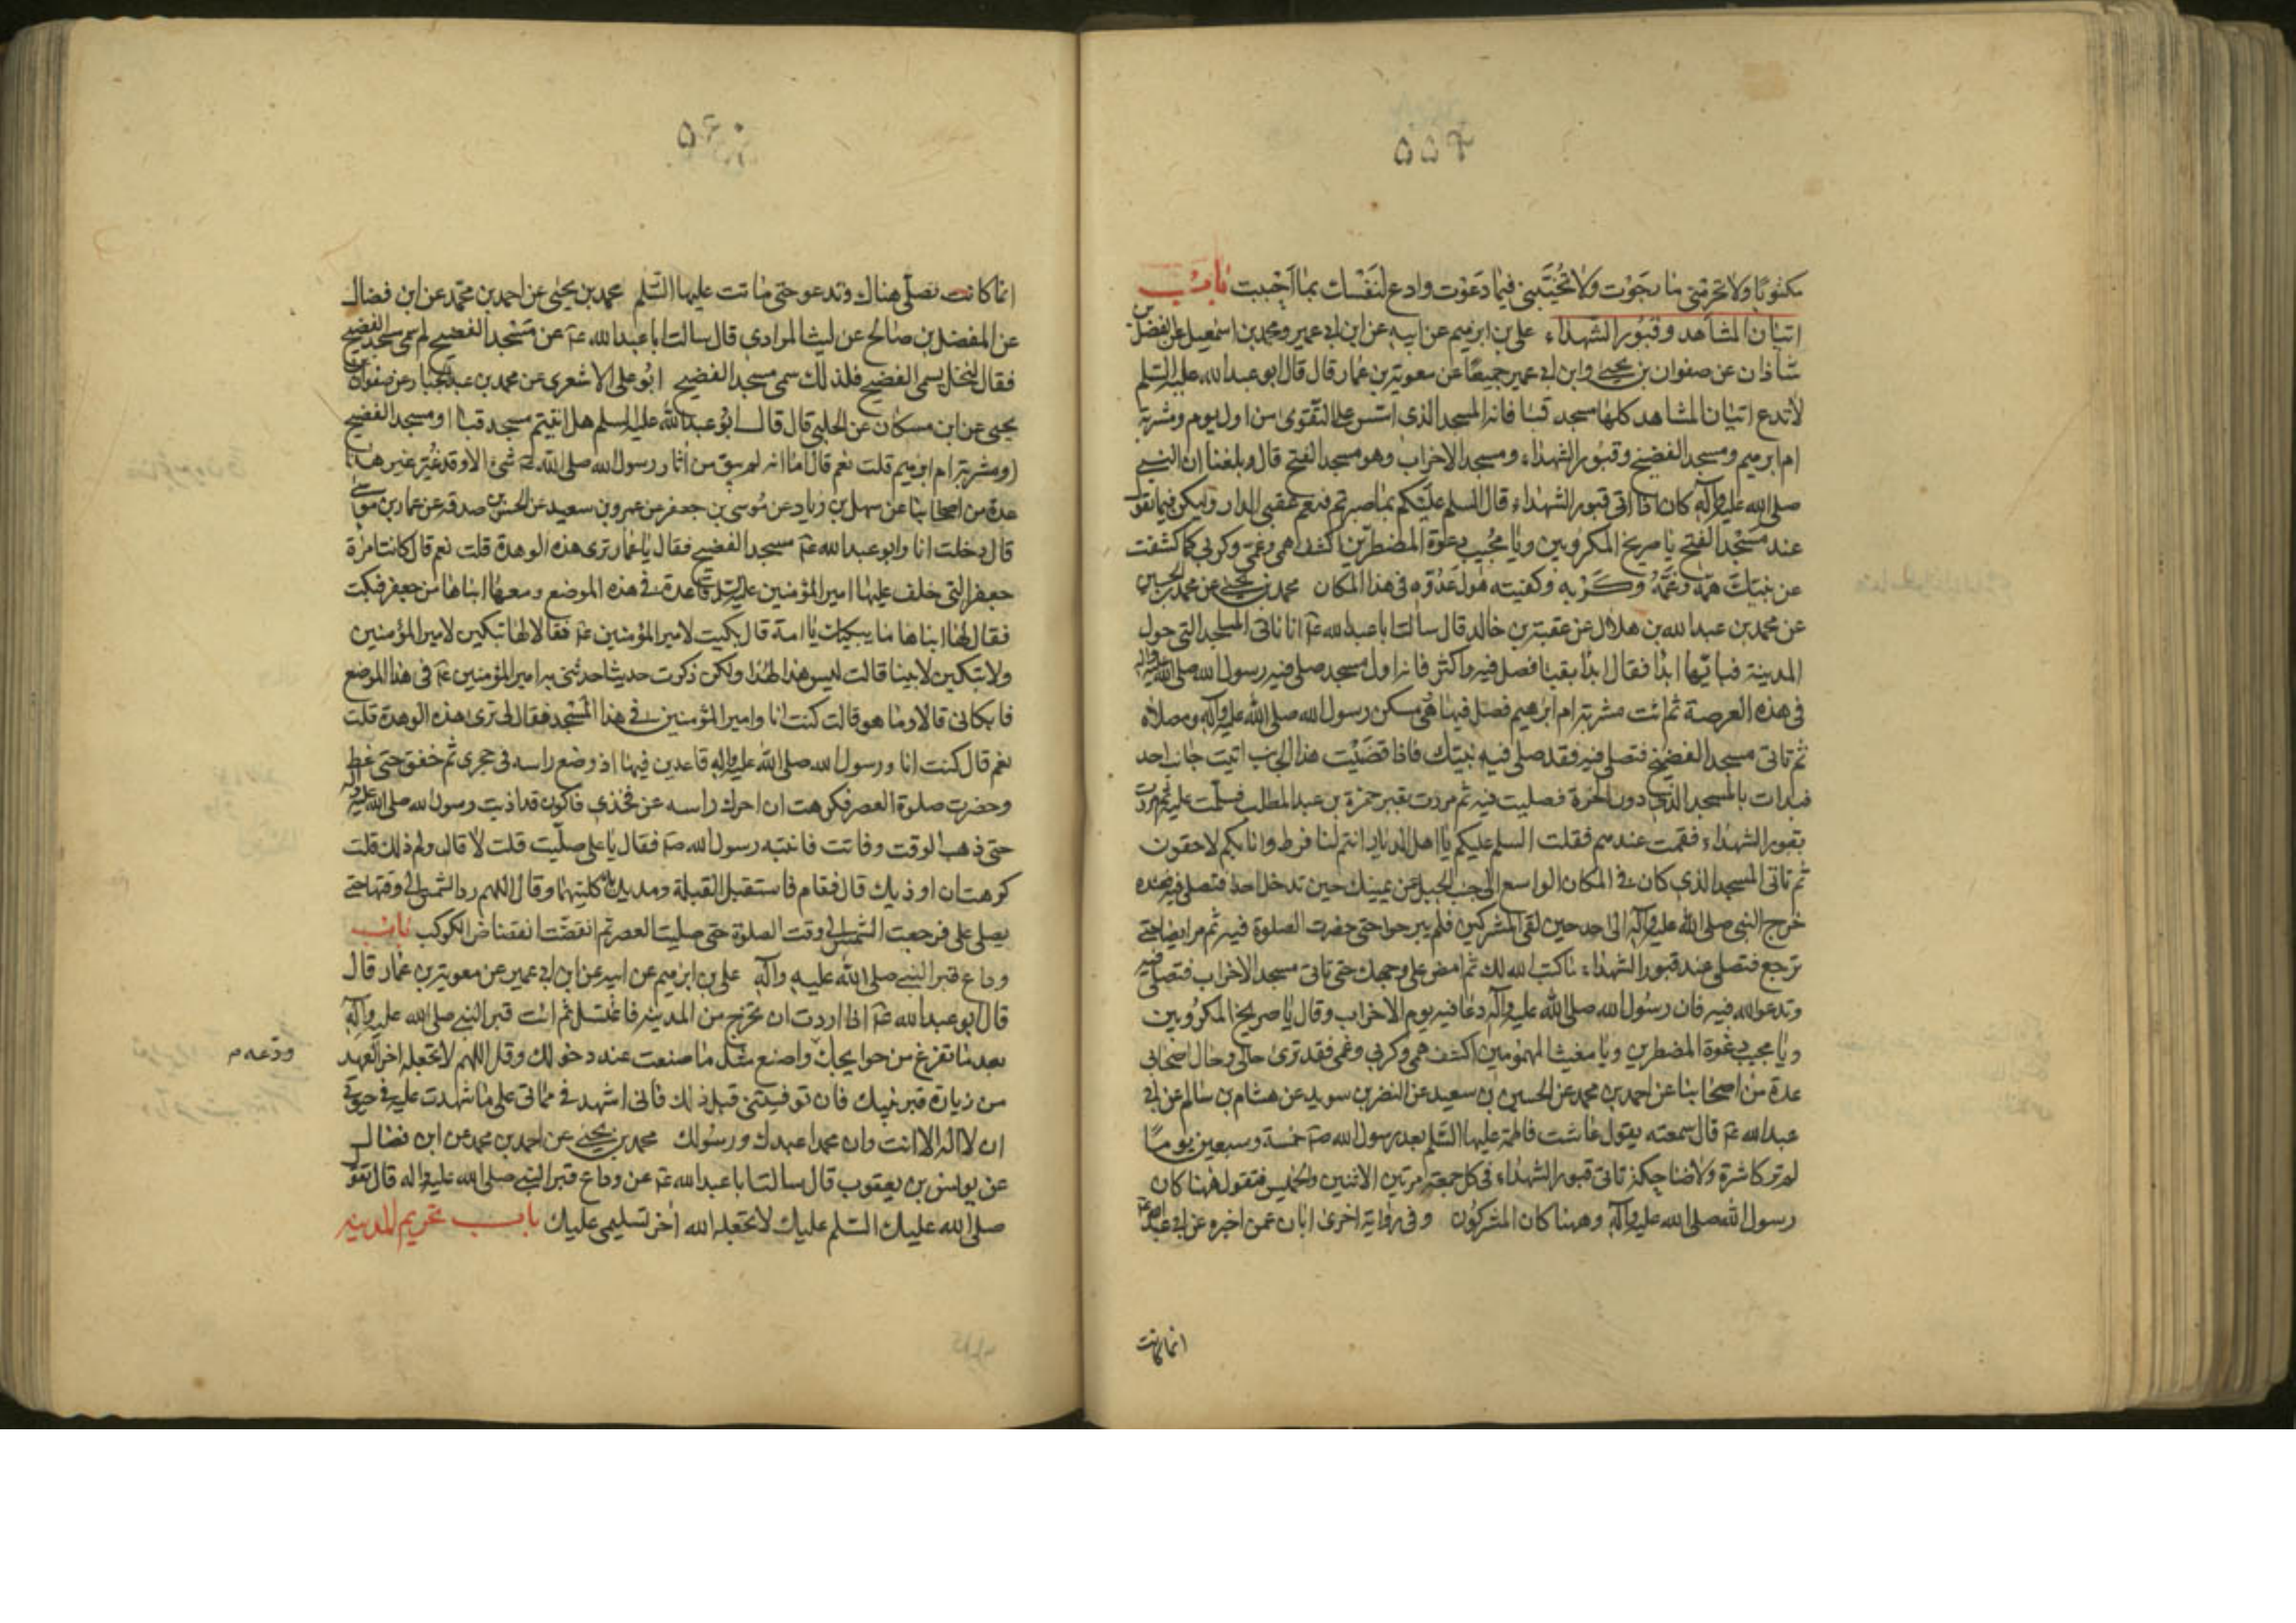 ۵۵۹
مكنونا ولا تحرمني ما رجوت ولا تخيبني فيما دعوت وادع لنفسك بما احببت باب
اتيان المشاهد وقبور الشهداء علي بن ابرهيم عن ابيه عن ابن ابي عمير ومحمد بن اسمعيل عن الفضل بن
شاذان عن صفوان بن يحيى وابن ابي عمير جميعا عن معوية بن عمار قال قال ابو عبد الله عليه السلم
لا تدع اتيان المشاهد كلها مسجد قبا فانه المسجد الذي اسس على التقوى من اول يوم ومشربة
ام ابرهيم ومسجد الفضيخ وقبور الشهداء ومسجد الاحزاب وهو مسجد الفتح قال وبلغنا ان النبي
صلى الله عليه وآله كان اذا اتى قبور الشهداء قال السلم عليكم بما صبرتم فنعم عقبى الدار وليكن فيما تقول
عند مسجد الفتح يا صريخ المكروبين ويا مجيب دعوة المضطرين اكشف همي وغمي وكربي كما كشفت
عن نبيك همه وغمه وكربه وكفيته هول عدوه في هذا المكان محمد بن يحيى عن محمد بن الحسين
عن محمد بن عبد الله بن هلال عن عقبة بن خالد قال سالت ابا عبد الله عم انا ناتي المساجد التي حول
المدينة فبايها ابدا فقال ابدا بقبا فصل فيه واكثر فانه اول مسجد صلى فيه رسول الله صلى الله عليه وآله
في هذه العرصة ثم ائت مشربة ام ابرهيم فصل فيها هي مسكن رسول الله صلى الله عليه وآله ومصلاه
ثم تاتي مسجد الفضيخ فتصلي فيه فقد صلى فيه نبيك فاذا قضيت هذا الجانب اتيت جانب احد
فبدات بالمسجد الذي دون الحرة فصليت فيه ثم مررت بقبر حمزة بن عبد المطلب فسلمت عليه ثم مررت
بقبور الشهداء فقمت عندهم فقلت السلم عليكم يا اهل الديار انتم لنا فرط وانا بكم لاحقون
ثم تاتي المسجد الذي كان في المكان الواسع الى جنب الجبل عن يمينك حين تدخل احدا فتصلي فيه فعنده
خرج النبي صلى الله عليه وآله الى احد حين لقي المشركين فلم يبرحوا حتى حضرت الصلوة فيه ثم مر ايضا حتى
ترجع فتصلي عند قبور الشهداء ما كتب الله لك ثم امض على وجهك حتى تاتي مسجد الاحزاب فتصلي فيه
وتدعو الله فيه فان رسول الله صلى الله عليه وآله دعا فيه يوم الاحزاب وقال يا صريخ المكروبين
ويا مجيب دعوة المضطرين ويا مغيث المهمومين اكشف همي وكربي وغمي فقد ترى حالي وحال اصحابي
عدة من اصحابنا عن احمد بن محمد عن الحسين بن سعيد عن النضر بن سويد عن هشام بن سالم عن ابي
عبد الله عم قال سمعته يقول عاشت فاطمة عليها السلم بعد رسول الله صم خمسة وسبعين يوما
لم تر كاشرة ولا ضاحكة تاتي قبور الشهداء في كل جمعة مرتين الاثنين والخميس فتقول ههنا كان
رسول الله صلى الله عليه وآله وههنا كان المشركون وفي رواية اخرى ابان عمن اخبره عن ابي عبد الله عم
انما كانت
۵۶۰
انما كانت تصلي هناك وتدعو حتى ماتت عليها السلم محمد بن يحيى عن احمد بن محمد عن ابن فضال
عن المفضل بن صالح عن ليث المرادي قال سالت ابا عبد الله عم عن مسجد الفضيخ لم سمي مسجد الفضيخ
فقال لنخل يسمى الفضيخ فلذلك سمي مسجد الفضيخ ابو علي الاشعري عن محمد بن عبد الجبار عن صفوان بن
يحيى عن ابن مسكان عن الحلبي قال قال ابو عبد الله عليه السلم هل اتيتم مسجد قبا او مسجد الفضيخ
او مشربة ام ابرهيم قلت نعم قال اما انه لم يبق من اثار رسول الله صلى الله عليه شئ الا وقد غير غير هذا
عدة من اصحابنا عن سهل بن زياد عن موسى بن جعفر عن عمرو بن سعيد عن الحسن بن صدقه عن عمار بن موسى
قال دخلت انا وابو عبد الله عم مسجد الفضيخ فقال يا عمار ترى هذه الوهدة قلت نعم قال كانت امراة
جعفر التي خلف عليها امير المؤمنين عليه السلم قاعدة في هذه الموضع ومعها ابناها من جعفر فبكت
فقال لها ابناها ما يبكيك يا امة قال بكيت لامير المؤمنين عم فقالا لها تبكين لامير المؤمنين
ولا تبكين لابينا قالت ليس هذا لهذا ولكن ذكرت حديثا حدثني به امير المؤمنين عم في هذا الموضع
فابكاني قالا وما هو قالت كنت انا وامير المؤمنين في هذا المسجد فقال لي ترى هذه الوهدة قلت
نعم قال كنت انا ورسول الله صلى الله عليه وآله قاعدين فيها اذ وضع راسه في حجري ثم خفق حتى غط
وحضرت صلوة العصر فكرهت ان احرك راسه عن فخذي فاكون قد اذيت رسول الله صلى الله عليه وآله
حتى ذهب الوقت وفاتت فانتبه رسول الله صم فقال يا علي صليت قلت لا قال ولم ذلك قلت
كرهت ان اوذيك قال فقام فاستقبل القبلة ومد يديه كلتيهما وقال اللهم رد الشمس الى وقتها حتى
يصلي علي فرجعت الشمس الى وقت الصلوة حتى صليت العصر ثم انقضت انقضاض الكوكب باب
وداع قبر النبي صلى الله عليه وآله علي بن ابرهيم عن ابيه عن ابن ابي عمير عن معوية بن عمار قال
قال ابو عبد الله عم اذا اردت ان تخرج من المدينه فاغتسل ثم ائت قبر النبي صلى الله عليه وآله
بعد ما تفرغ من حوايجك واصنع مثل ما صنعت عند دخولك وقل اللهم لا تجعله اخر العهد
ودعه م
من زيارة قبر نبيك فان توفيتني قبل ذلك فاني اشهد في مماتي على ما شهدت عليه في حيوتي
ان لا اله الا انت وان محمدا عبدك ورسولك محمد بن يحيى عن احمد بن محمد عن ابن فضال
عن يونس بن يعقوب قال سالت ابا عبد الله عم عن وداع قبر النبي صلى الله عليه واله قال تقول
صلى الله عليك السلم عليك لا تجعله الله اخر تسليمي عليك باب تحريم المدينه